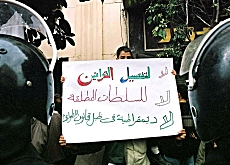 لا لتفصيل القوانين
لا للسلطات المطلقة
لا ديمقراطية فى ظل قانون الطوارئ